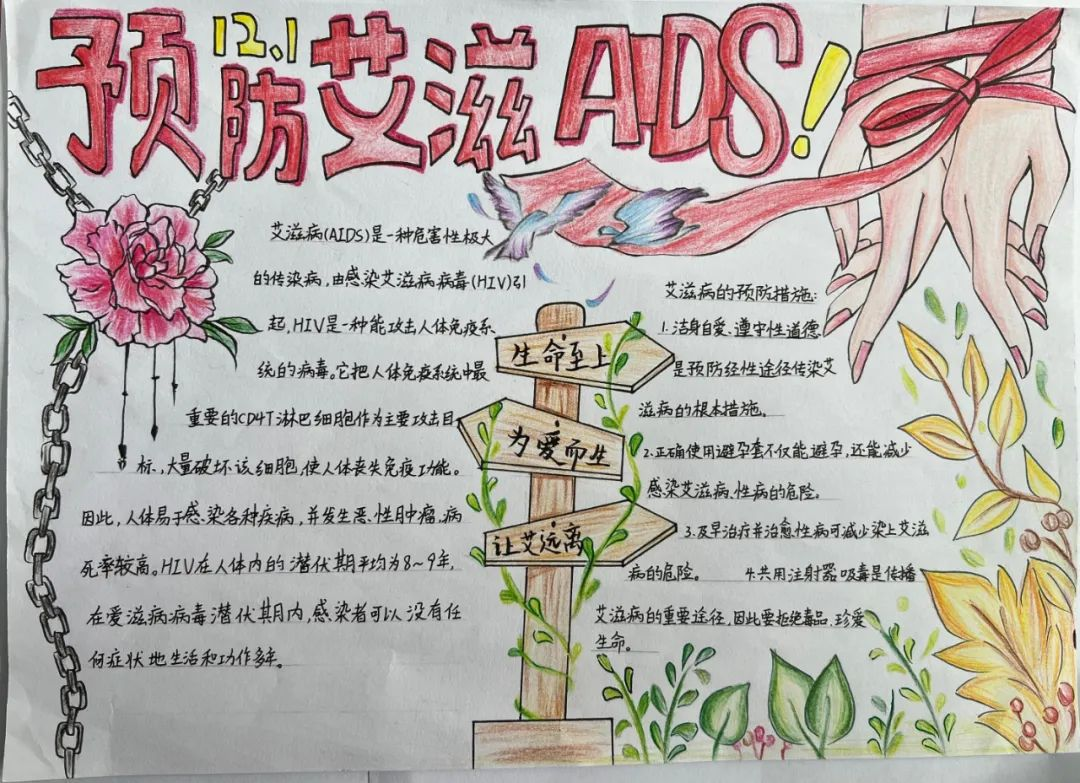 预防艾滋AIDS!
12.1
艾滋病(AIDS)是一种危害性极大
的传染病,由感染艾滋病病毒(HIV)引
起,HIV是一种能攻击人体免疫系
统的病毒。它把人体免疫系统中最
重要的CD4T淋巴细胞作为主要攻击目
标,大量破坏该细胞,使人体丧失免疫功能。
因此,人体易于感染各种疾病,并发生恶性肿瘤,病
死率较高。HIV在人体内的潜伏期平均为8~9年,
在爱滋病病毒潜伏其月内,感染者可以没有任
何症状地生活和功作多年。
生命至上
为爱而生
让艾远离
艾滋病的预防措施:
1.洁身自爱、遵守性道德
是预防经性途径传染艾
滋病的根本措施。
2.正确使用避孕套不仅能避孕,还能减少
感染艾滋病、性病的危险。
3.及早治疗并治愈性病可减少染上艾滋
病的危险。 4.共用注射器吸毒是传播
艾滋病的重要途径,因此要拒绝毒品,珍爱
生命。